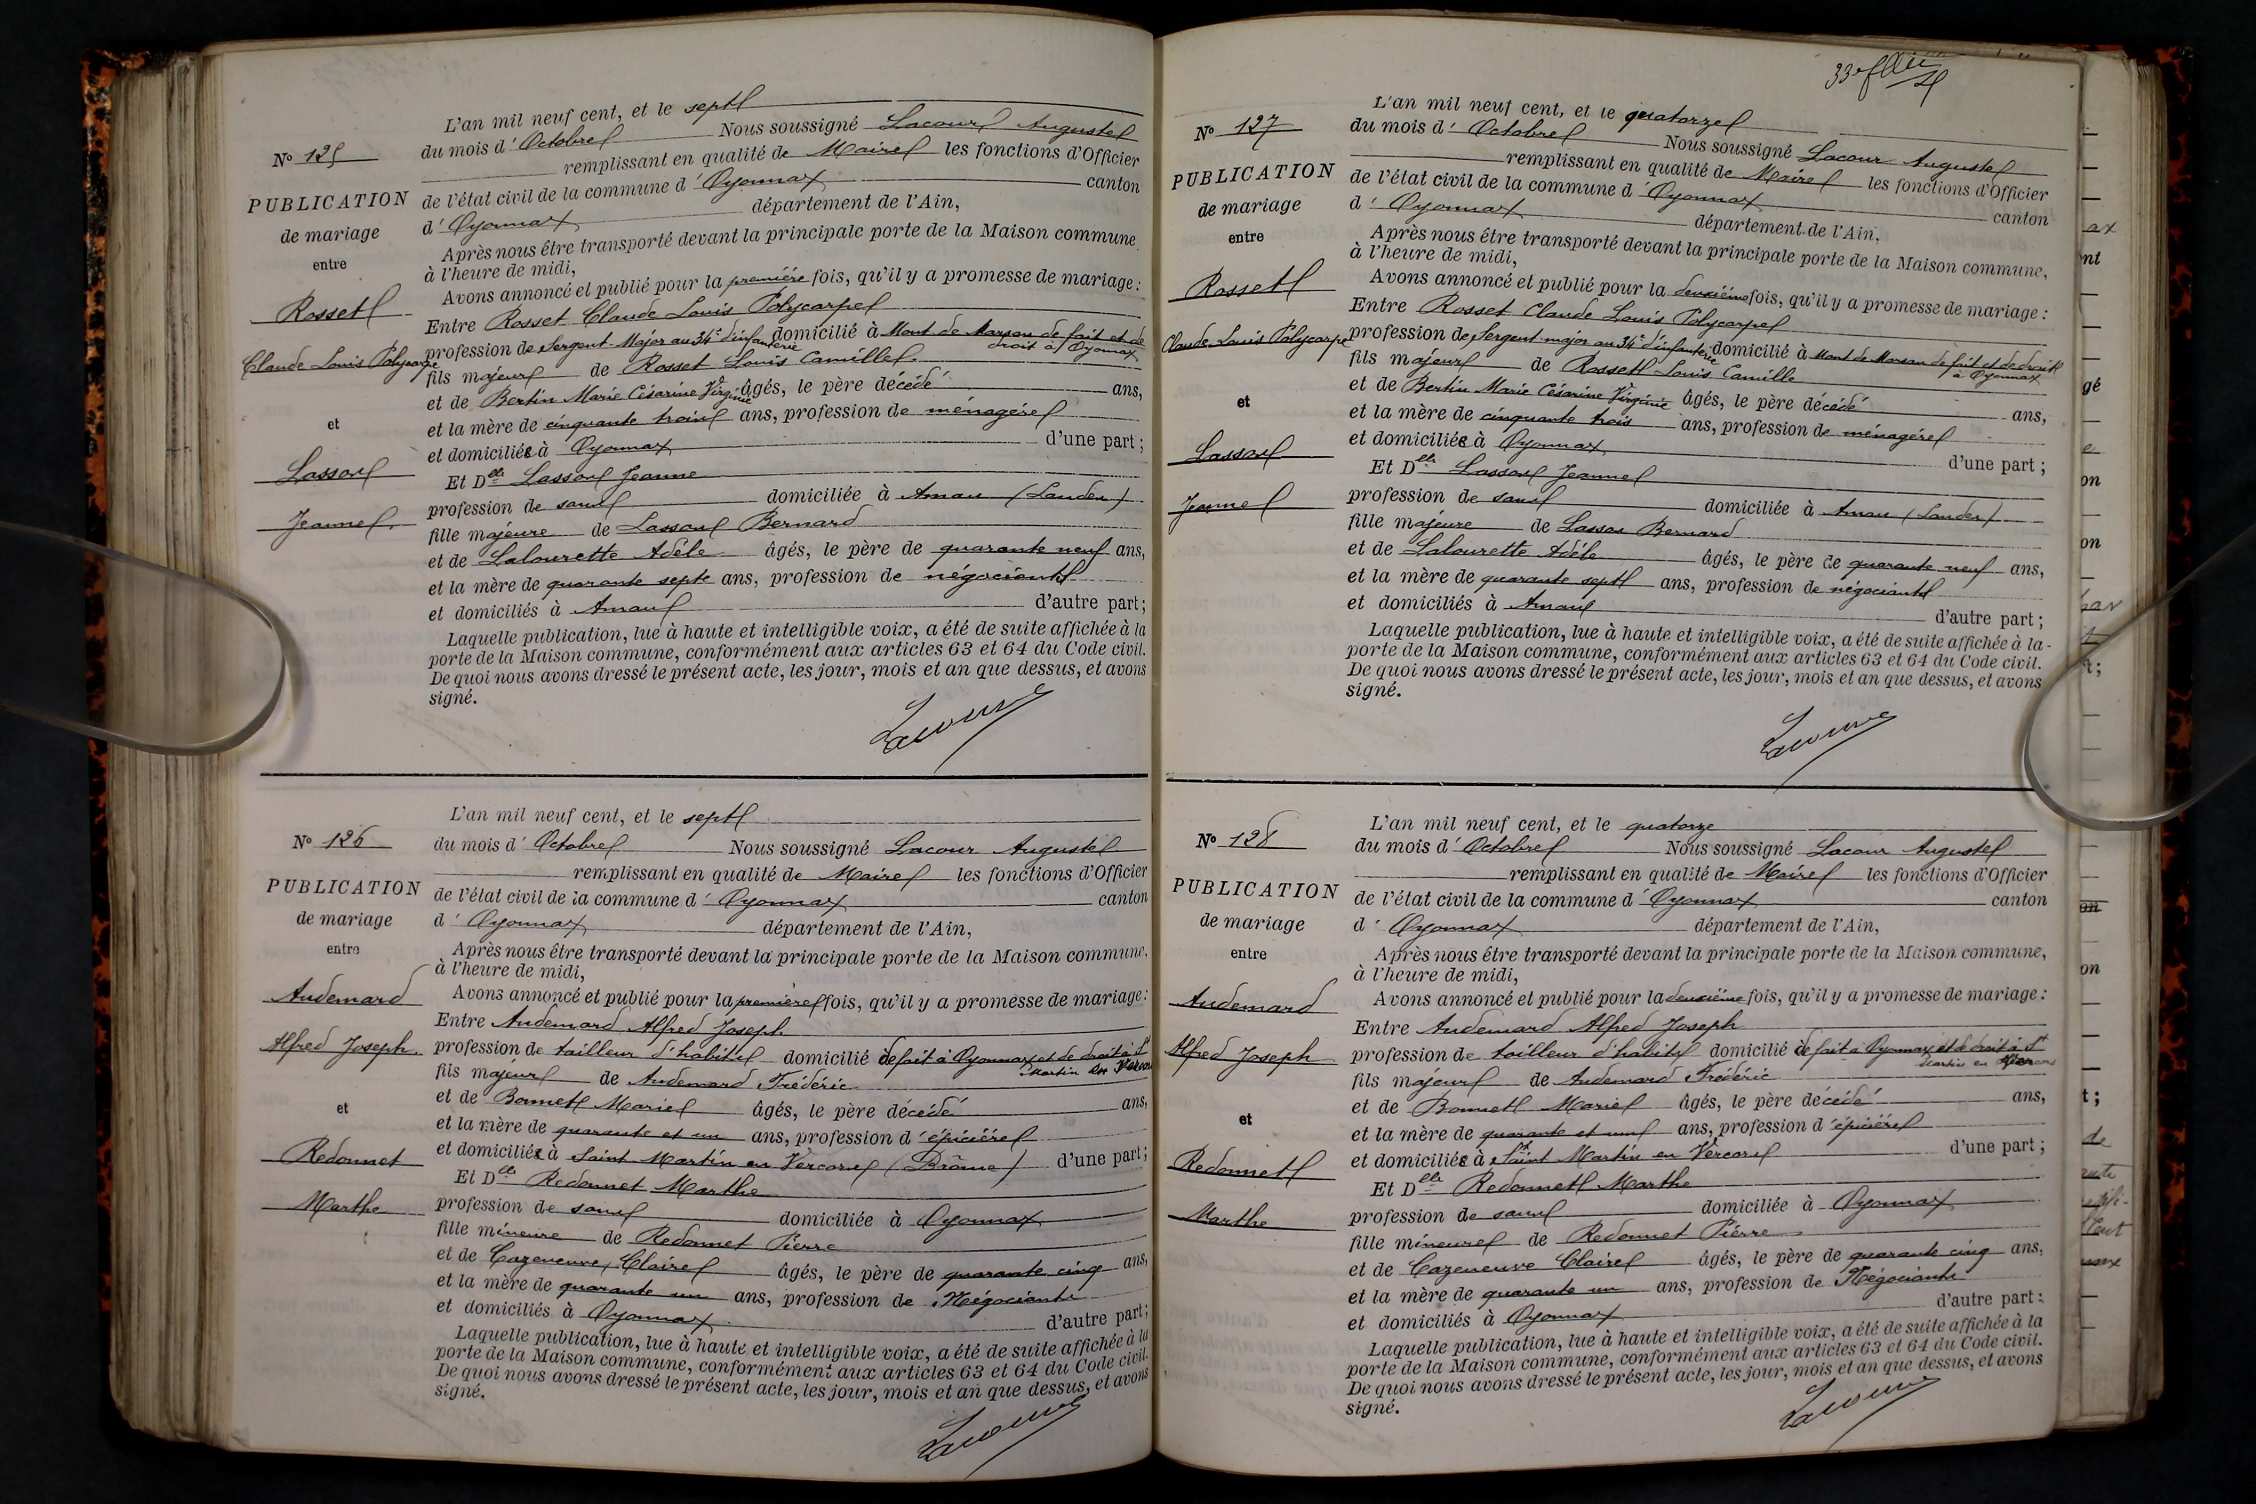 L'an mil neuf cent, et le sept
N° 125
du mois d' Octobre Nous soussigné Lacour Auguste
remplissant en qualité de Maire les fonctions d'Officier
PUBLICATION
de mariage
entre
Rosset
Claude Louis Polycarpe
et
Lassou
Jeanne
de l'état civil de la commune d' Oyonnax canton
d' Oyonnax département de l'Ain,
Après nous être transporté devant la principale porte de la Maison commune
à l'heure de midi,
Avons annoncé et publié pour la première fois, qu'il y a promesse de mariage :
Entre Rosset Claude Louis Polycarpe
profession de Sergent-Major au 34e d'infanterie domicilié à Mont de Marsan de fait et de
droit à Oyonnax
fils majeur de Rosset Louis Camille
et de Bertin Marie Césarine Virginie âgés, le père décédé ans,
et la mère de cinquante trois ans, profession de ménagère
et domiciliée à Oyonnax d'une part ;
Et Dlle Lassou Jeanne
profession de sans domiciliée à Amou (Landes)
fille majeure de Lassou Bernard
et de Lalourette Adèle âgés, le père de quarante neuf ans,
et la mère de quarante sept ans, profession de négociants
et domiciliés à Amou d'autre part ;
Laquelle publication, lue à haute et intelligible voix, a été de suite affichée à la
porte de la Maison commune, conformément aux articles 63 et 64 du Code civil.
De quoi nous avons dressé le présent acte, les jour, mois et an que dessus, et avons
signé.
Lacour
L'an mil neuf cent, et le sept
N° 126
du mois d' Octobre Nous soussigné Lacour Auguste
remplissant en qualité de Maire les fonctions d'Officier
PUBLICATION
de mariage
entre
Audemard
Alfred Joseph
et
Redonnet
Marthe
de l'état civil de la commune d' Oyonnax canton
d' Oyonnax département de l'Ain,
Après nous être transporté devant la principale porte de la Maison commune,
à l'heure de midi,
Avons annoncé et publié pour la première fois, qu'il y a promesse de mariage :
Entre Audemard Alfred Joseph
profession de tailleur d'habits domicilié de fait à Oyonnax et de droit à St
Martin en Vercors
fils majeur de Audemard Frédéric
et de Bonnet Marie âgés, le père décédé ans,
et la mère de quarante et un ans, profession d'épicière
et domiciliée à Saint Martin en Vercors (Drôme) d'une part ;
Et Dlle Redonnet Marthe
profession de sans domiciliée à Oyonnax
fille mineure de Redonnet Pierre
et de Cazeneuve Claire âgés, le père de quarante cinq ans,
et la mère de quarante un ans, profession de Négociants
et domiciliés à Oyonnax d'autre part ;
Laquelle publication, lue à haute et intelligible voix, a été de suite affichée à la
porte de la Maison commune, conformément aux articles 63 et 64 du Code civil.
De quoi nous avons dressé le présent acte, les jour, mois et an que dessus, et avons
signé.
Lacour
33e
L'an mil neuf cent, et le quatorze
N° 127
du mois d' Octobre Nous soussigné Lacour Auguste
remplissant en qualité de Maire les fonctions d'Officier
PUBLICATION
de mariage
entre
Rosset
Claude Louis Polycarpe
et
Lassou
Jeanne
de l'état civil de la commune d' Oyonnax canton
d' Oyonnax département de l'Ain,
Après nous être transporté devant la principale porte de la Maison commune,
à l'heure de midi,
Avons annoncé et publié pour la deuxième fois, qu'il y a promesse de mariage :
Entre Rosset Claude Louis Polycarpe
profession de Sergent-major au 34e d'infanterie domicilié à Mont de Marsan de fait et de droit
à Oyonnax
fils majeur de Rosset Louis Camille
et de Bertin Marie Césarine Virginie âgés, le père décédé ans,
et la mère de cinquante trois ans, profession de ménagère
et domiciliée à Oyonnax d'une part ;
Et Dlle Lassou Jeanne
profession de sans domiciliée à Amou (Landes)
fille majeure de Lassou Bernard
et de Lalourette Adèle âgés, le père de quarante neuf ans,
et la mère de quarante sept ans, profession de négociants
et domiciliés à Amou d'autre part ;
Laquelle publication, lue à haute et intelligible voix, a été de suite affichée à la
porte de la Maison commune, conformément aux articles 63 et 64 du Code civil.
De quoi nous avons dressé le présent acte, les jour, mois et an que dessus, et avons
signé.
Lacour
L'an mil neuf cent, et le quatorze
N° 128
du mois d' Octobre Nous soussigné Lacour Auguste
remplissant en qualité de Maire les fonctions d'Officier
PUBLICATION
de mariage
entre
Audemard
Alfred Joseph
et
Redonnet
Marthe
de l'état civil de la commune d' Oyonnax canton
d' Oyonnax département de l'Ain,
Après nous être transporté devant la principale porte de la Maison commune,
à l'heure de midi,
Avons annoncé et publié pour la deuxième fois, qu'il y a promesse de mariage :
Entre Audemard Alfred Joseph
profession de tailleur d'habits domicilié de fait à Oyonnax et de droit à St
Martin en Vercors
fils majeur de Audemard Frédéric
et de Bonnet Marie âgés, le père décédé ans,
et la mère de quarante et un ans, profession d'épicière
et domiciliée à Saint Martin en Vercors d'une part ;
Et Dlle Redonnet Marthe
profession de sans domiciliée à Oyonnax
fille mineure de Redonnet Pierre
et de Cazeneuve Claire âgés, le père de quarante cinq ans,
et la mère de quarante un ans, profession de Négociants
et domiciliés à Oyonnax d'autre part ;
Laquelle publication, lue à haute et intelligible voix, a été de suite affichée à la
porte de la Maison commune, conformément aux articles 63 et 64 du Code civil.
De quoi nous avons dressé le présent acte, les jour, mois et an que dessus, et avons
signé.
Lacour